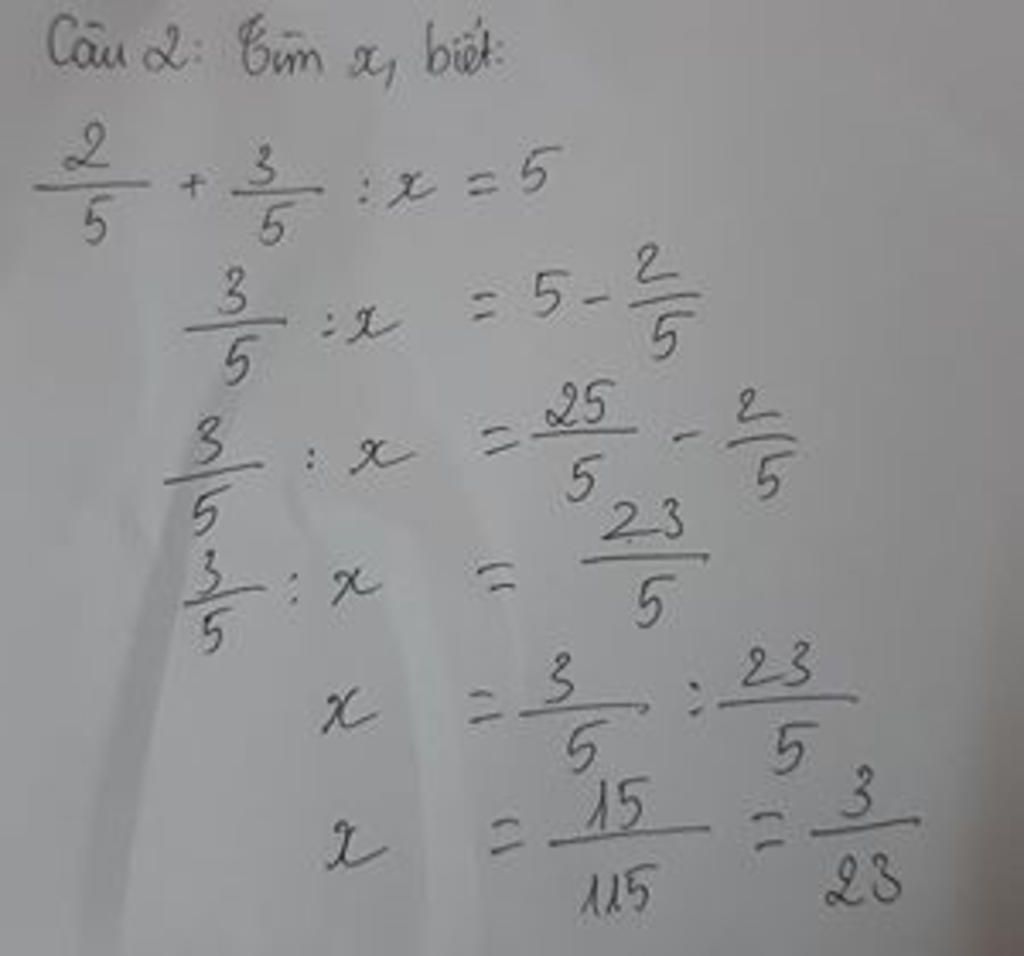 Câu 2: Tìm x, biết:
2/5 + 3/5 : x = 5
3/5 : x = 5 - 2/5
3/5 : x = 25/5 - 2/5
3/5 : x = 23/5
x = 3/5 : 23/5
x = 15/115 = 3/23